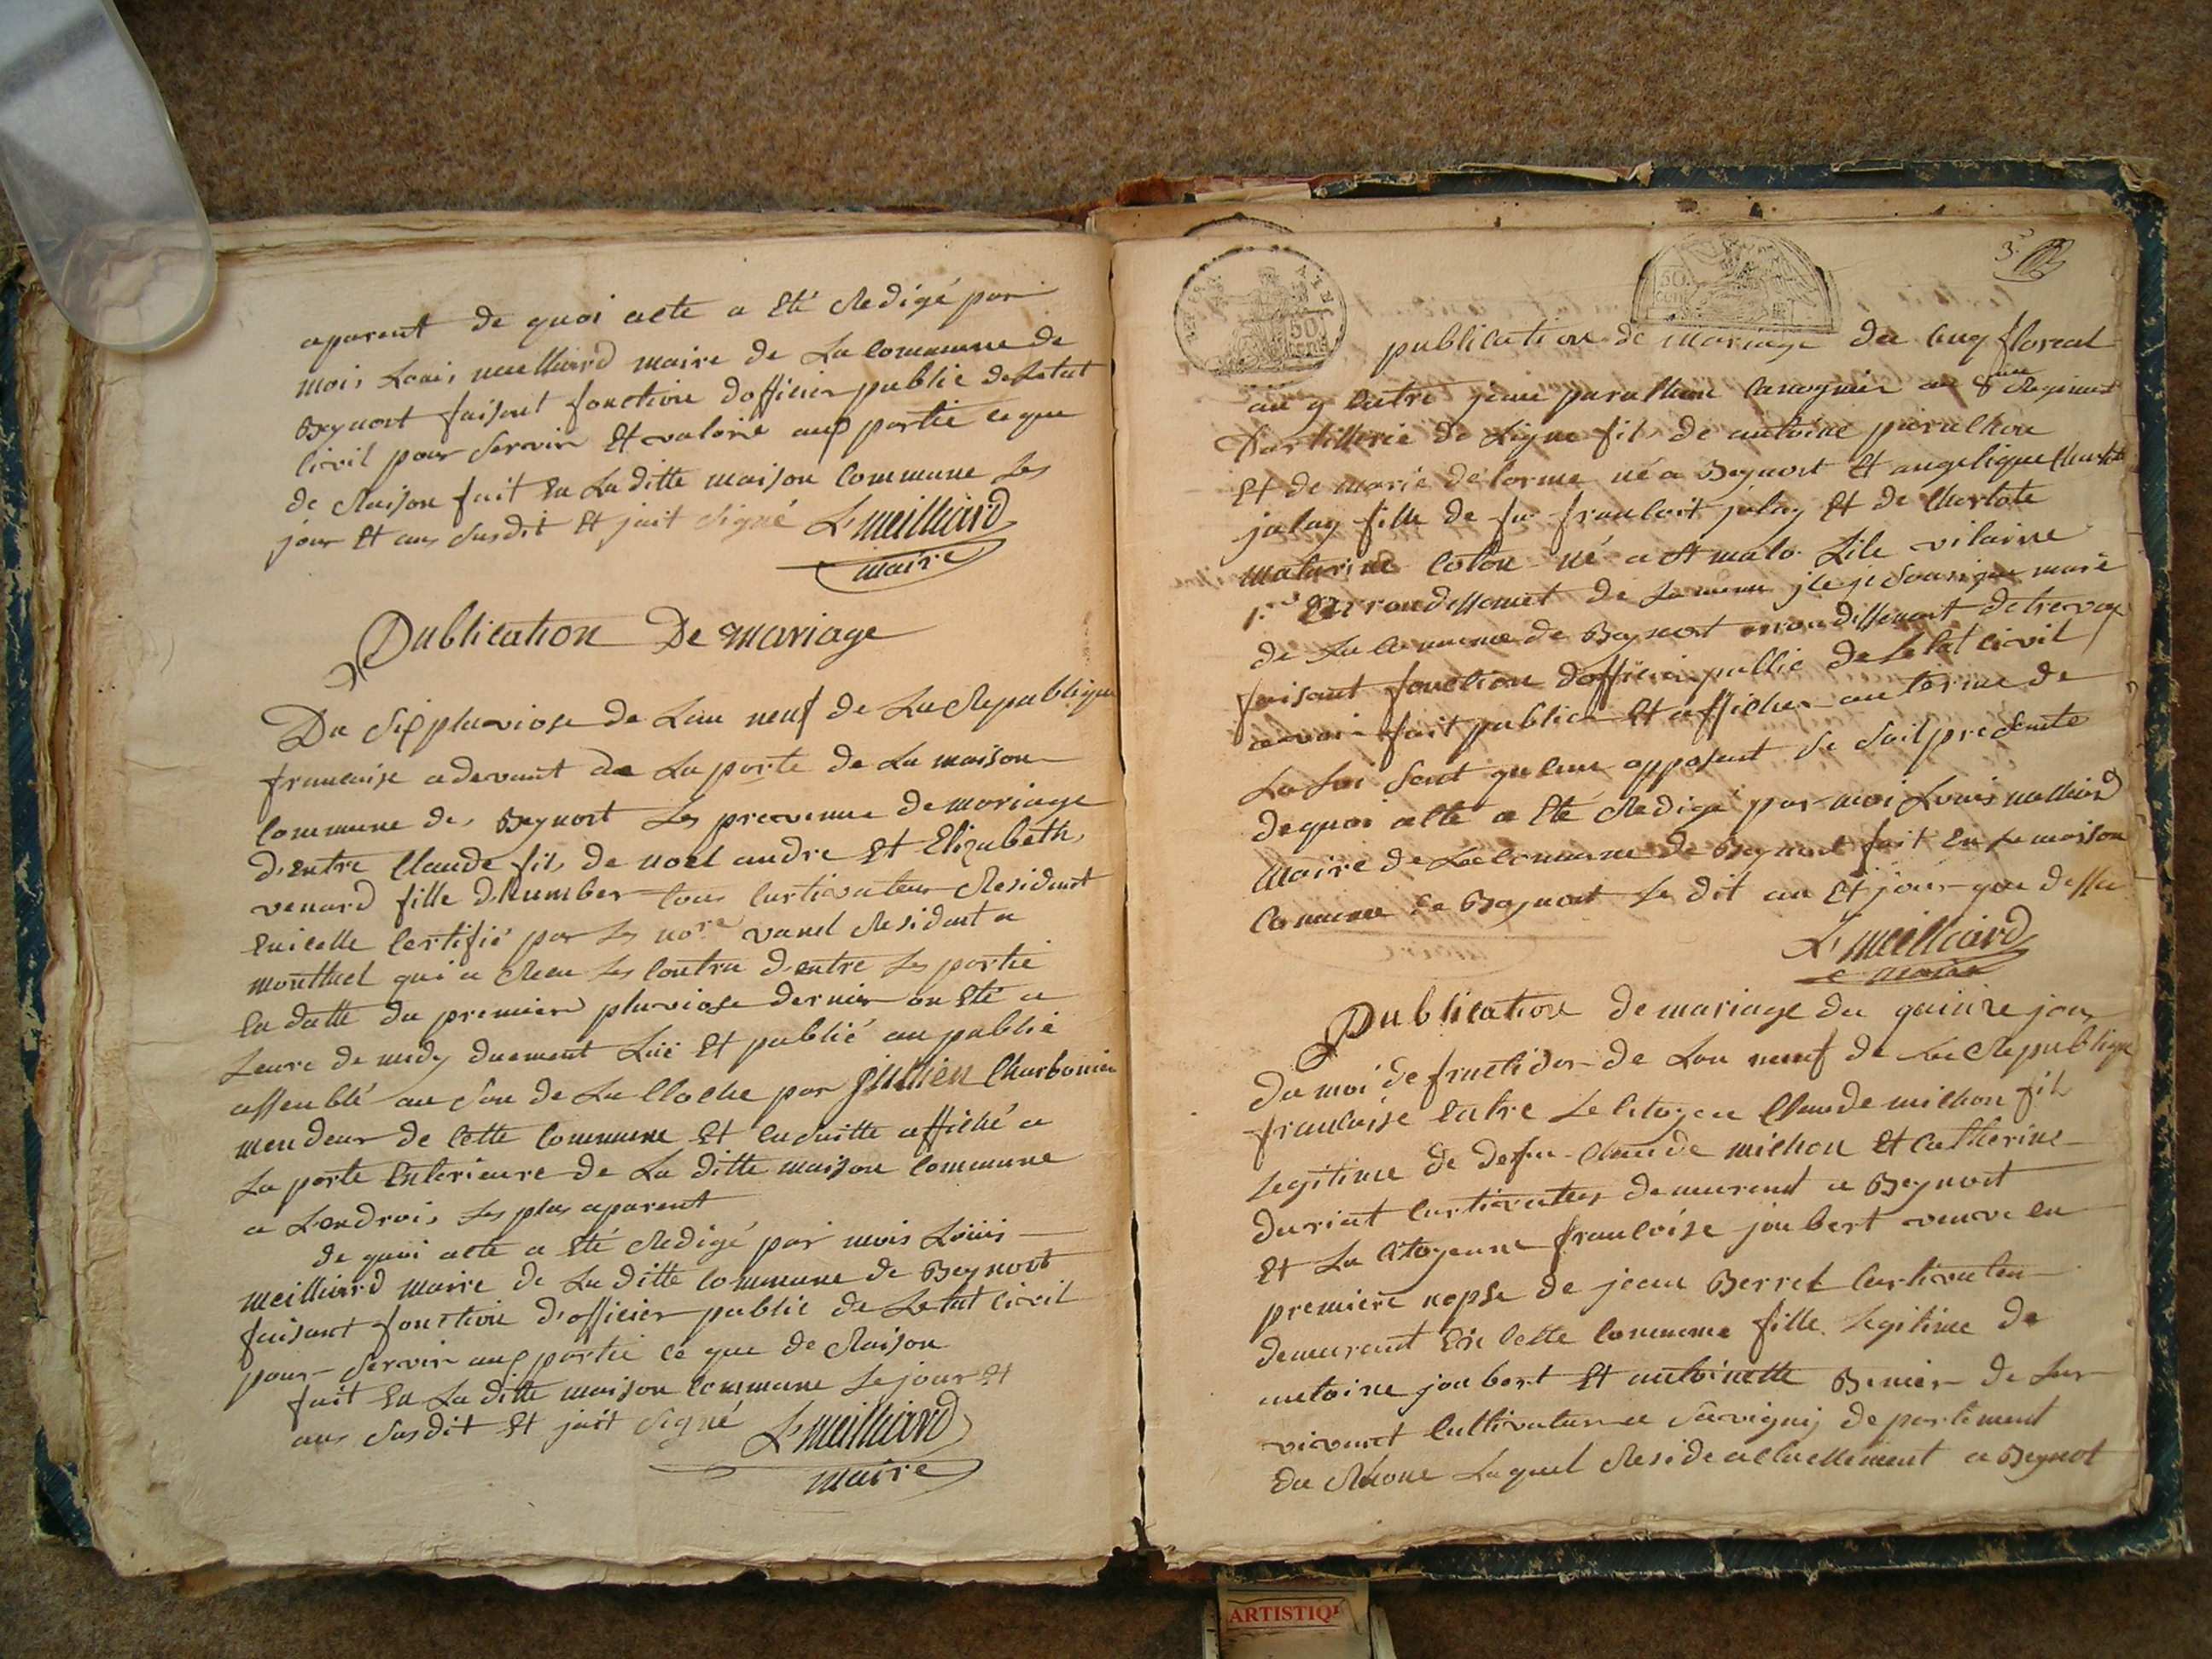 aparent de quoi acte a Eté Redigé par
mois Louis meilliard maire de La commune de
Beynost faisant fonction dofficier public de Letat
civil pour Servir Et valoire aux partie ce que
de Raison fait En La ditte maison Commune Les
jour Et ans Susdit Et jait Signé L. meilliard
maire
Publication De mariage
Du Six pluviose de Lan neuf de La Republique
francaise adevant de La porte de La maison
Commune de Beynost Les prevenue de mariage
d'Entre Claude fils de noel andre Et Elizabeth
venard fille dhumber tous Curtivateur Resident
Enicelle Certifié par Les nore vanel Resident a
montluel qui a Reu Les Contra dentre Les partie
En datte du premier pluviose dernier on Eté a
Leure de midy duement Lüe Et publié au public
assemblé au Son de La Cloche par jullien Charbonier
mendeur de Cette Commune Et Ensuitte affiché a
La porte Exterieure de La ditte maison Commune
a Lendrois Les plus aparent
de quoi acte a Eté Redigé par mois Loüis
meilliard maire de La ditte Commune de Beynost
faisant fonction d'officier public de Letat Civil
pour Servir aux partie ce que de Raison
fait En La ditte maison Commune Le jour Et
ans Susdit Et jait Signé L. meilliard
maire
3
50
cent
publication de mariage du Cinq floreal
an 9 Entre jean paralhon Canognier au 8eme Regiment
Dartillerie de Ligne fils de antoine paralhon
Et de marie delorme né a Beynost Et angelique Charlote
jalay fille de fu francoit jalay Et de Charlote
maturine Coton né a St malo Lile vilaine
1er Errondissement de La meme je soussigne mare
de La Commune de Beynost arrondissement de trevoux
faisant fonction dofficier public de Letat Civil
avoir fait publier Et afficher au terme de
La Loi Sant quaucun opposant Se Soit presente
de quoi acte a Eté Redigé par moi Louis meilliard
Maire de La Commune de Beynost fait En La maison
Commune de Beynost Le dit an Et jour que dessu
L. meilliard
maire
Publication de mariage du quinze jour
du moi de fructidor de Lan neuf de La Republique
francaise Entre Le Citoyen Claude michon fils
Legitime de defun Claude michon Et Catherine
duriat Curtivateur demeurant a Beynost
Et La Citoyenne francoise joubert veuve En
premiere nopse de jean Berret Curtivateur
demeurant En Cette Commune fille Legitime de
antoine joubert Et antoinette Benier de Leur
vivant Cultivateur a Savigny departement
du Rhone Laquel Reside actuellement a Beynot